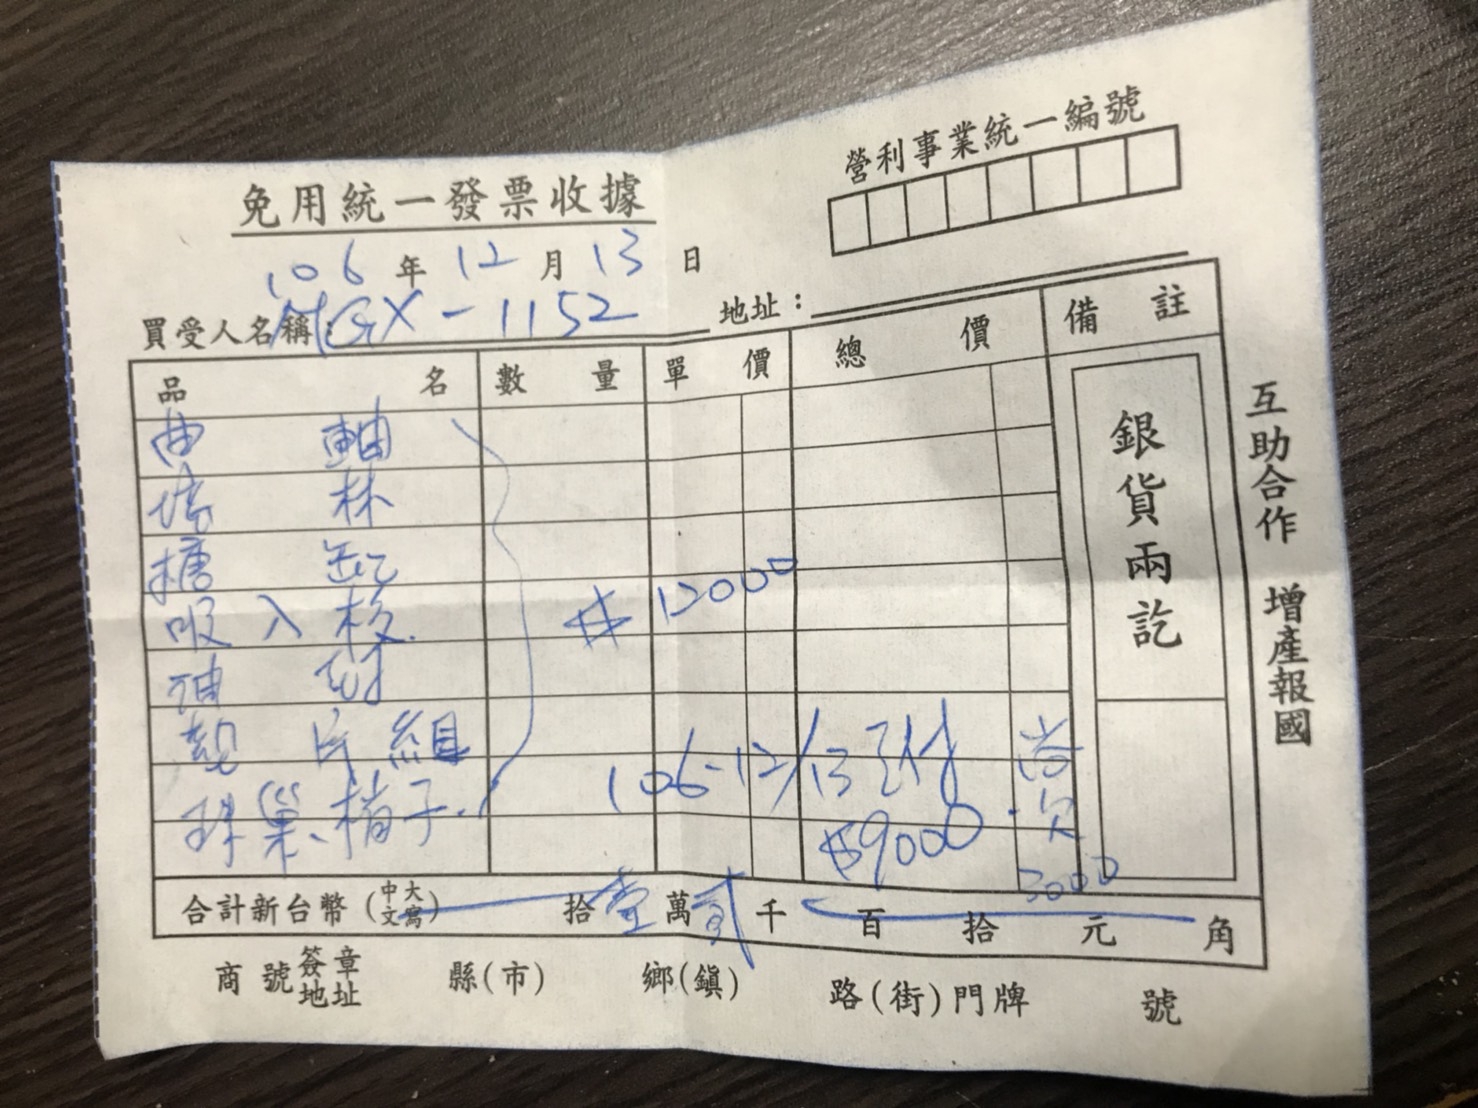 營利事業統一編號
免用統一發票收據
106 年 12 月 13 日
買受人名稱：MGX-1152 地址：
品名 數量 單價 總價 備註
曲 軸
培 林
搪 缸
吸入校
油 封
離 片 組
珠巢、楕子.
$12000
106-12/13 已付 尚欠
$9000 3000
銀貨兩訖
合計新台幣(中文大寫) 拾壹萬貳千 百 拾 元 角
商號簽章地址 縣(市) 鄉(鎮) 路(街)門牌 號
互助合作 增產報國